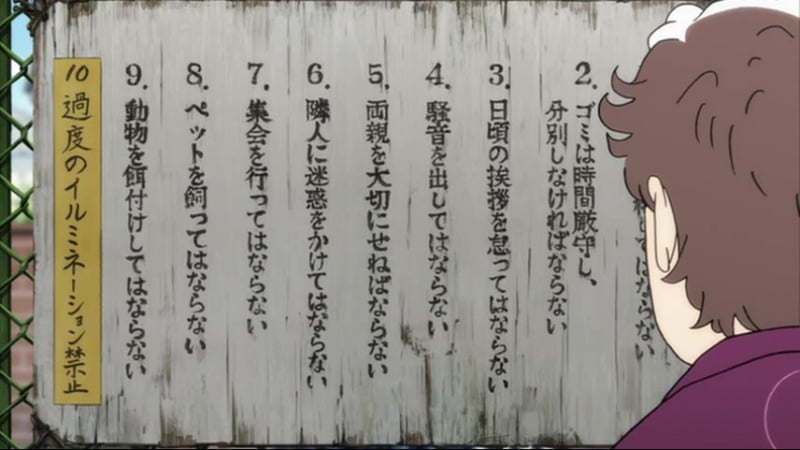 てはならない
2. ゴミは時間厳守し、
分別しなければならない
3. 日頃の挨拶を怠ってはならない
4. 騒音を出してはならない
5. 両親を大切にせねばならない
6. 隣人に迷惑をかけてはならない
7. 集会を行ってはならない
8. ペットを飼ってはならない
9. 動物を餌付けしてはならない
10 過度のイルミネーション禁止